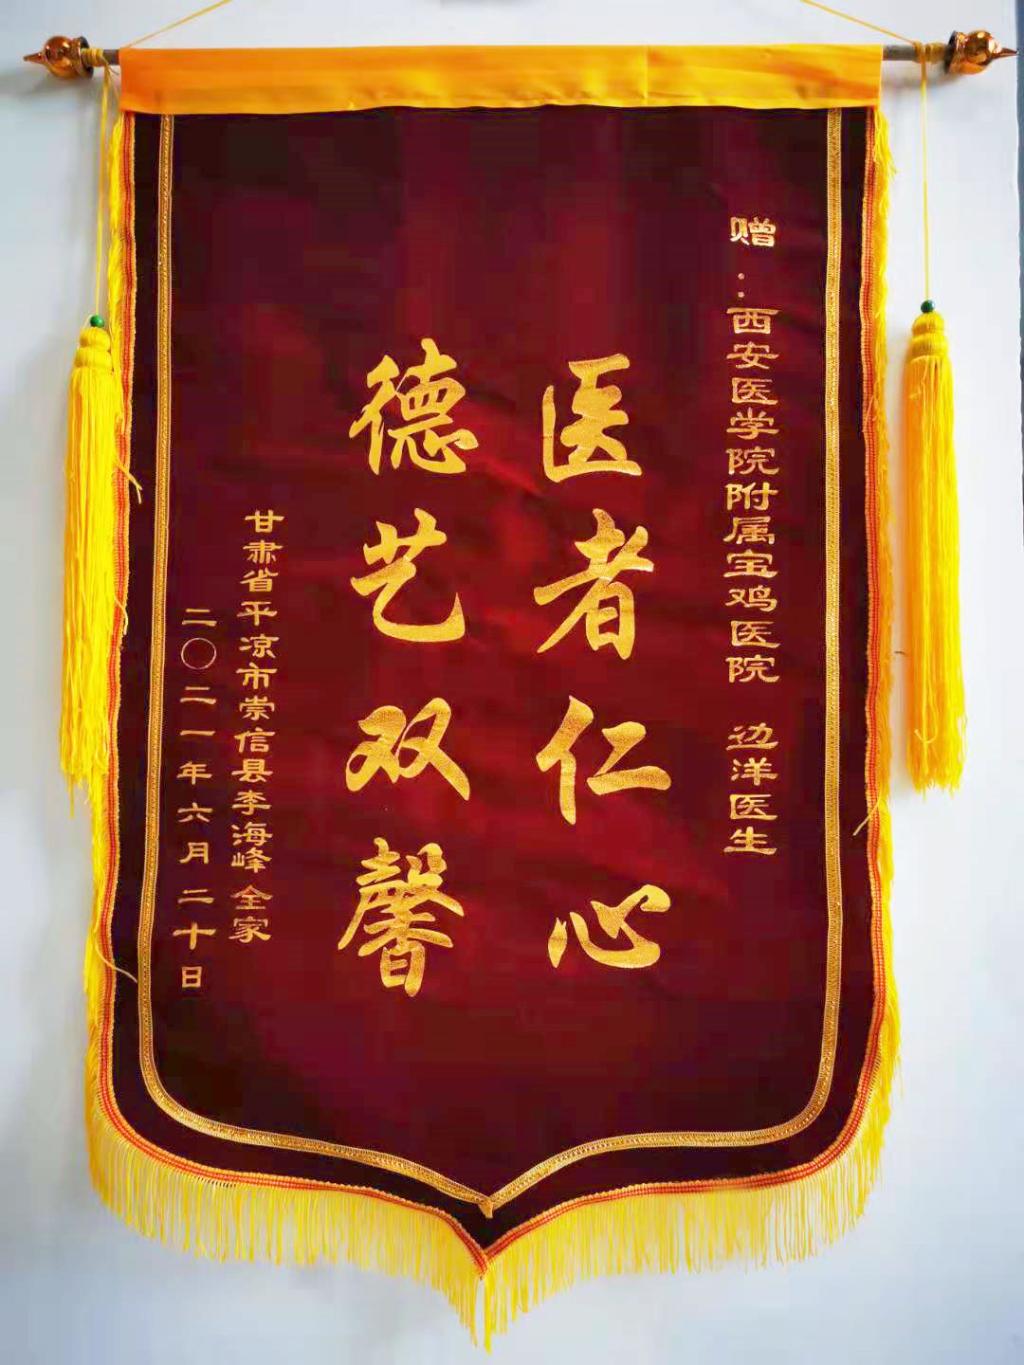 赠：西安医学院附属宝鸡医院 边洋医生
医者仁心
德艺双馨
甘肃省平凉市崇信县李海峰全家
二〇二一年六月二十日